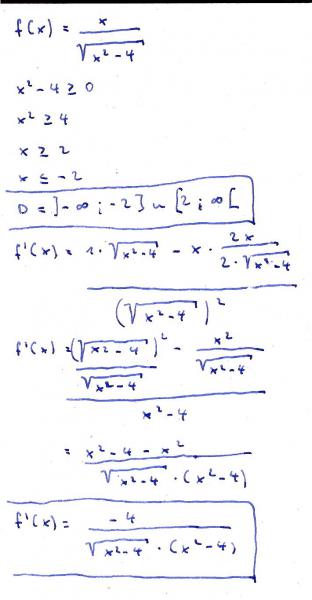 f(x) = x / √(x² - 4)
x² - 4 ≥ 0
x² ≥ 4
x ≥ 2
x ≤ -2
D = ]-∞ ; -2] ∪ [2 ; ∞[
f'(x) = (1 · √(x² - 4) - x · 2x / (2 · √(x² - 4))) / (√(x² - 4))²
f'(x) = ((√(x² - 4))² / √(x² - 4) - x² / √(x² - 4)) / (x² - 4)
= (x² - 4 - x²) / (√(x² - 4) · (x² - 4))
f'(x) = -4 / (√(x² - 4) · (x² - 4))